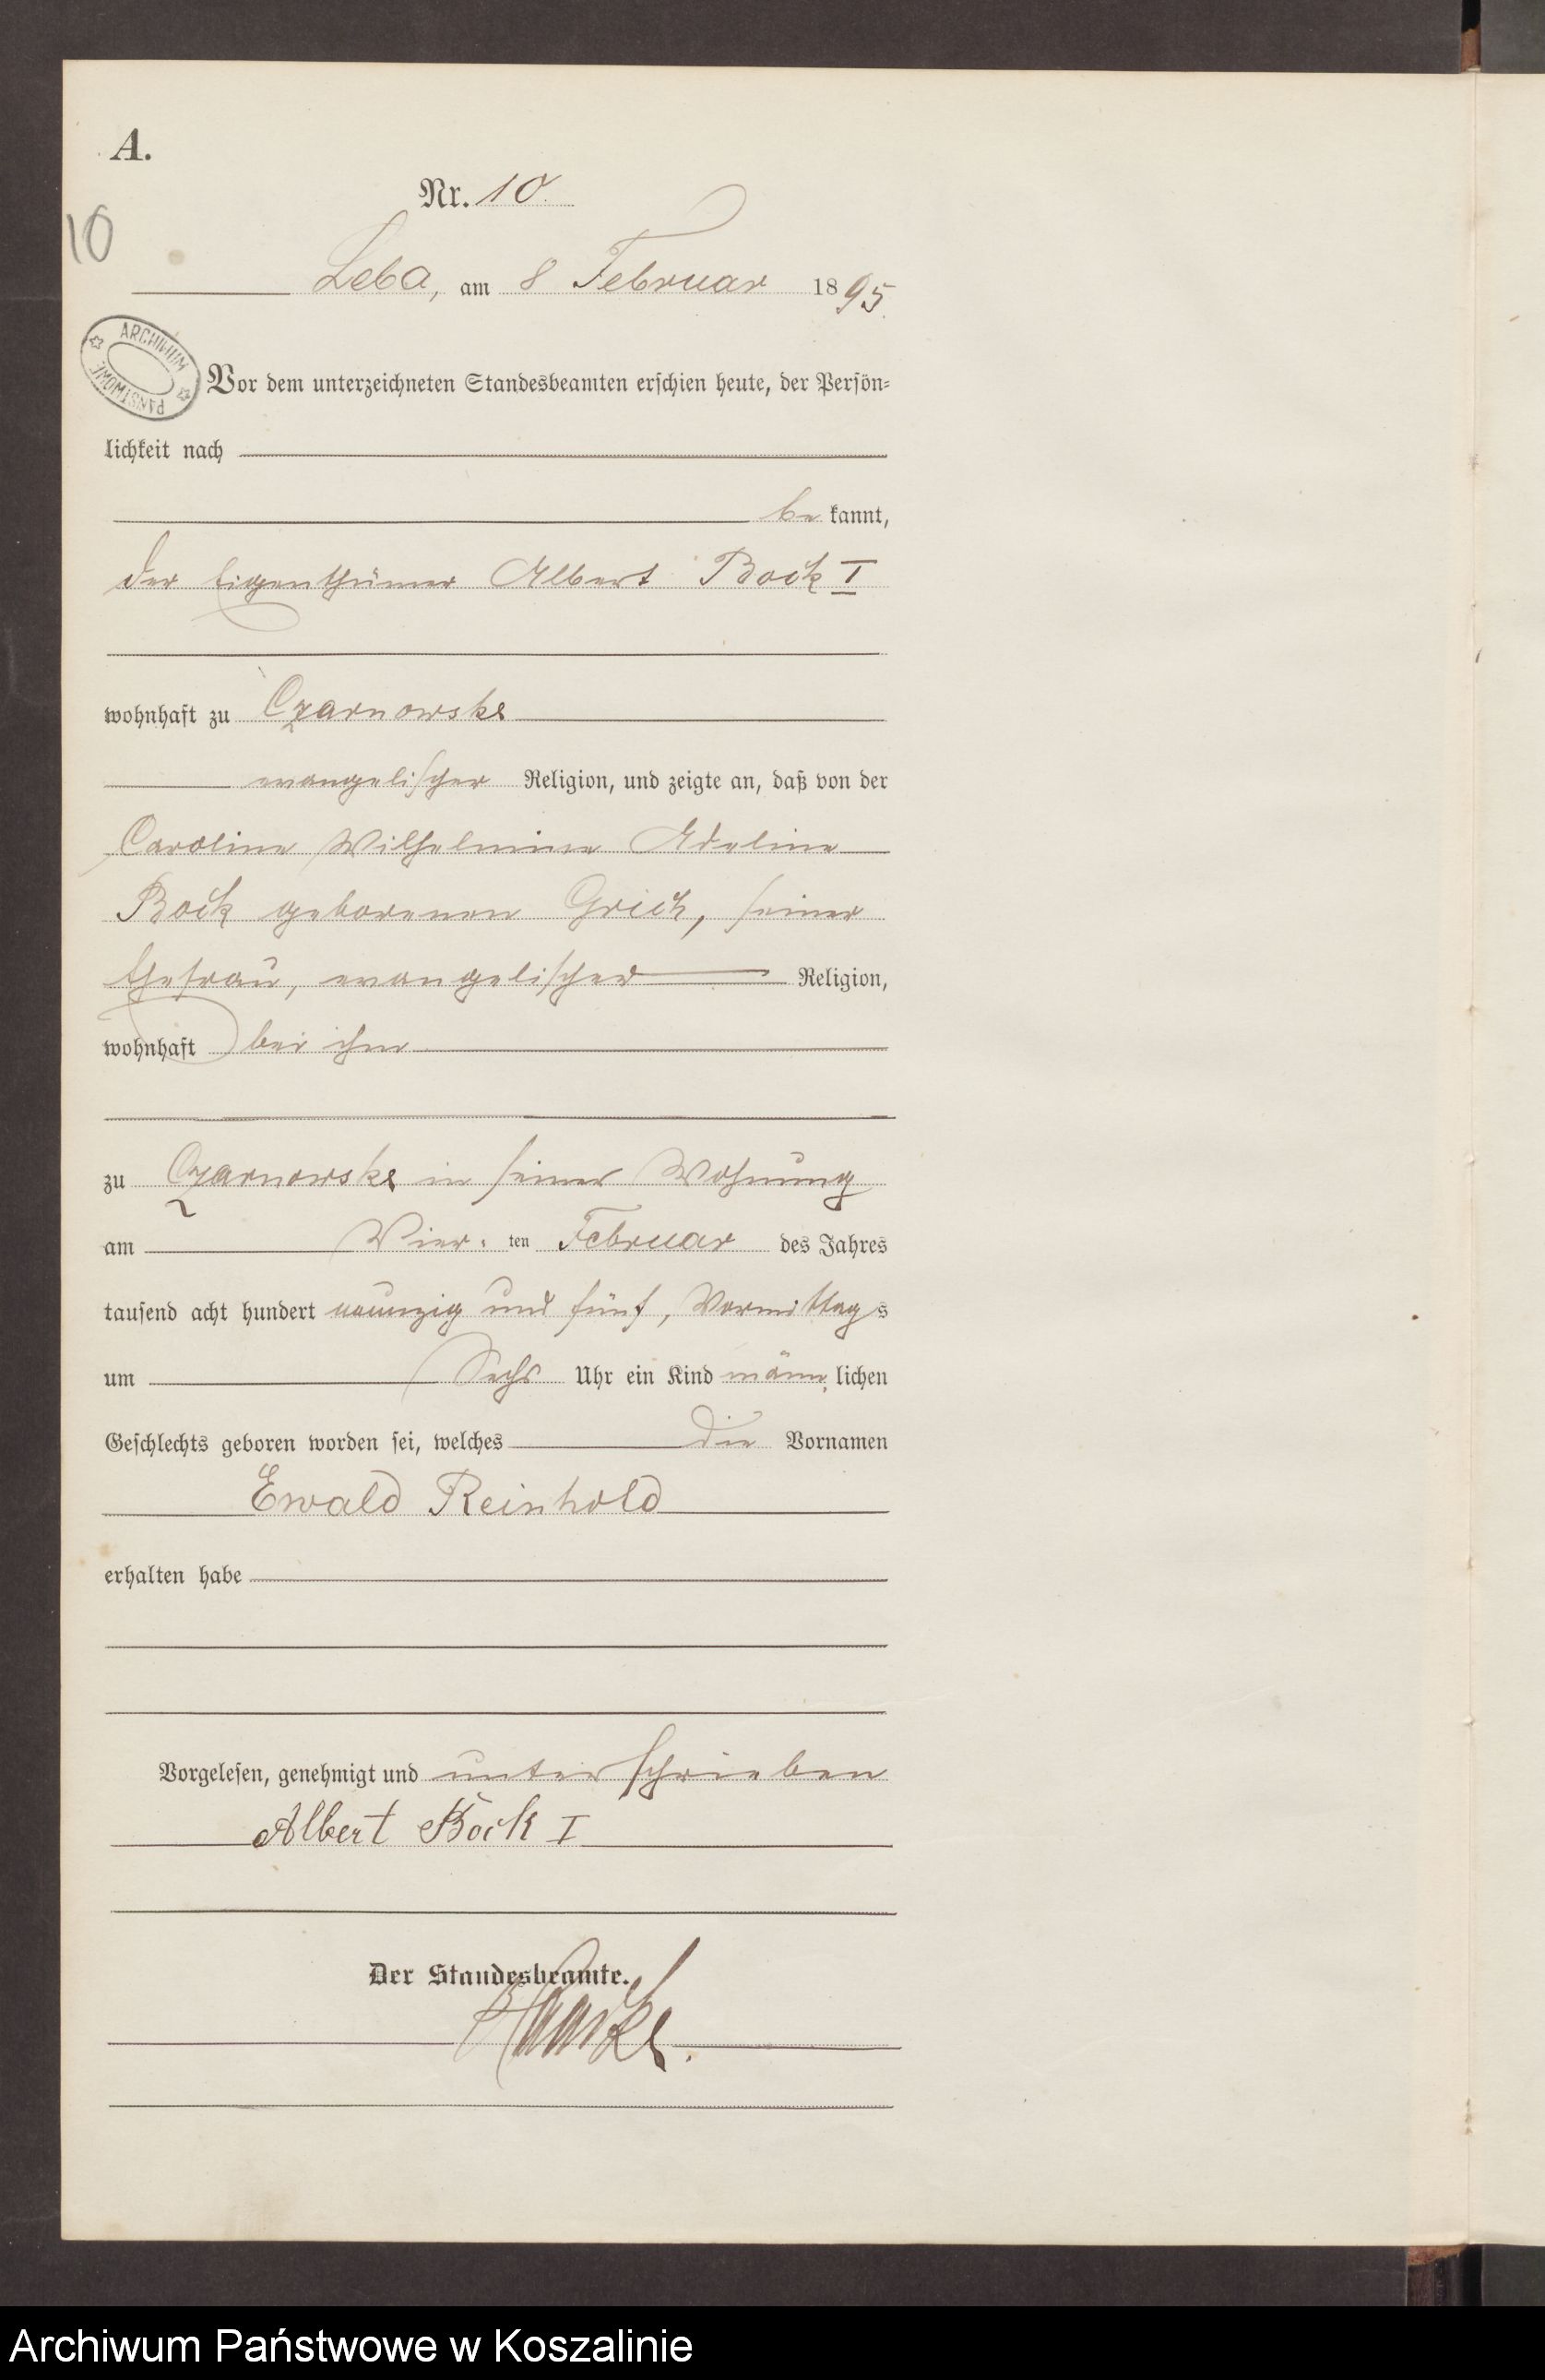 A.
Nr. 10.
10
Leba, am 8 Februar 1895.
ARCHIWUM PAŃSTWOWE
Vor dem unterzeichneten Standesbeamten erschien heute, der Persön-
lichkeit nach
be kannt,
der Eigenthümer Albert Bock I
wohnhaft zu Czarnowske
evangelischer Religion, und zeigte an, daß von der
Caroline Wilhelmine Adeline
Bock geborenen Grich, seiner
Ehefrau, evangelischer Religion,
wohnhaft bei ihm
zu Czarnowske in seiner Wohnung
am Vier ten Februar des Jahres
tausend acht hundert neunzig und fünf, Vormittags
um Sechs Uhr ein Kind männ lichen
Geschlechts geboren worden sei, welches die Vornamen
Ewald Reinhold
erhalten habe
Vorgelesen, genehmigt und unterschrieben
Albert Bock I
Der Standesbeamte.
Archiwum Państwowe w Koszalinie